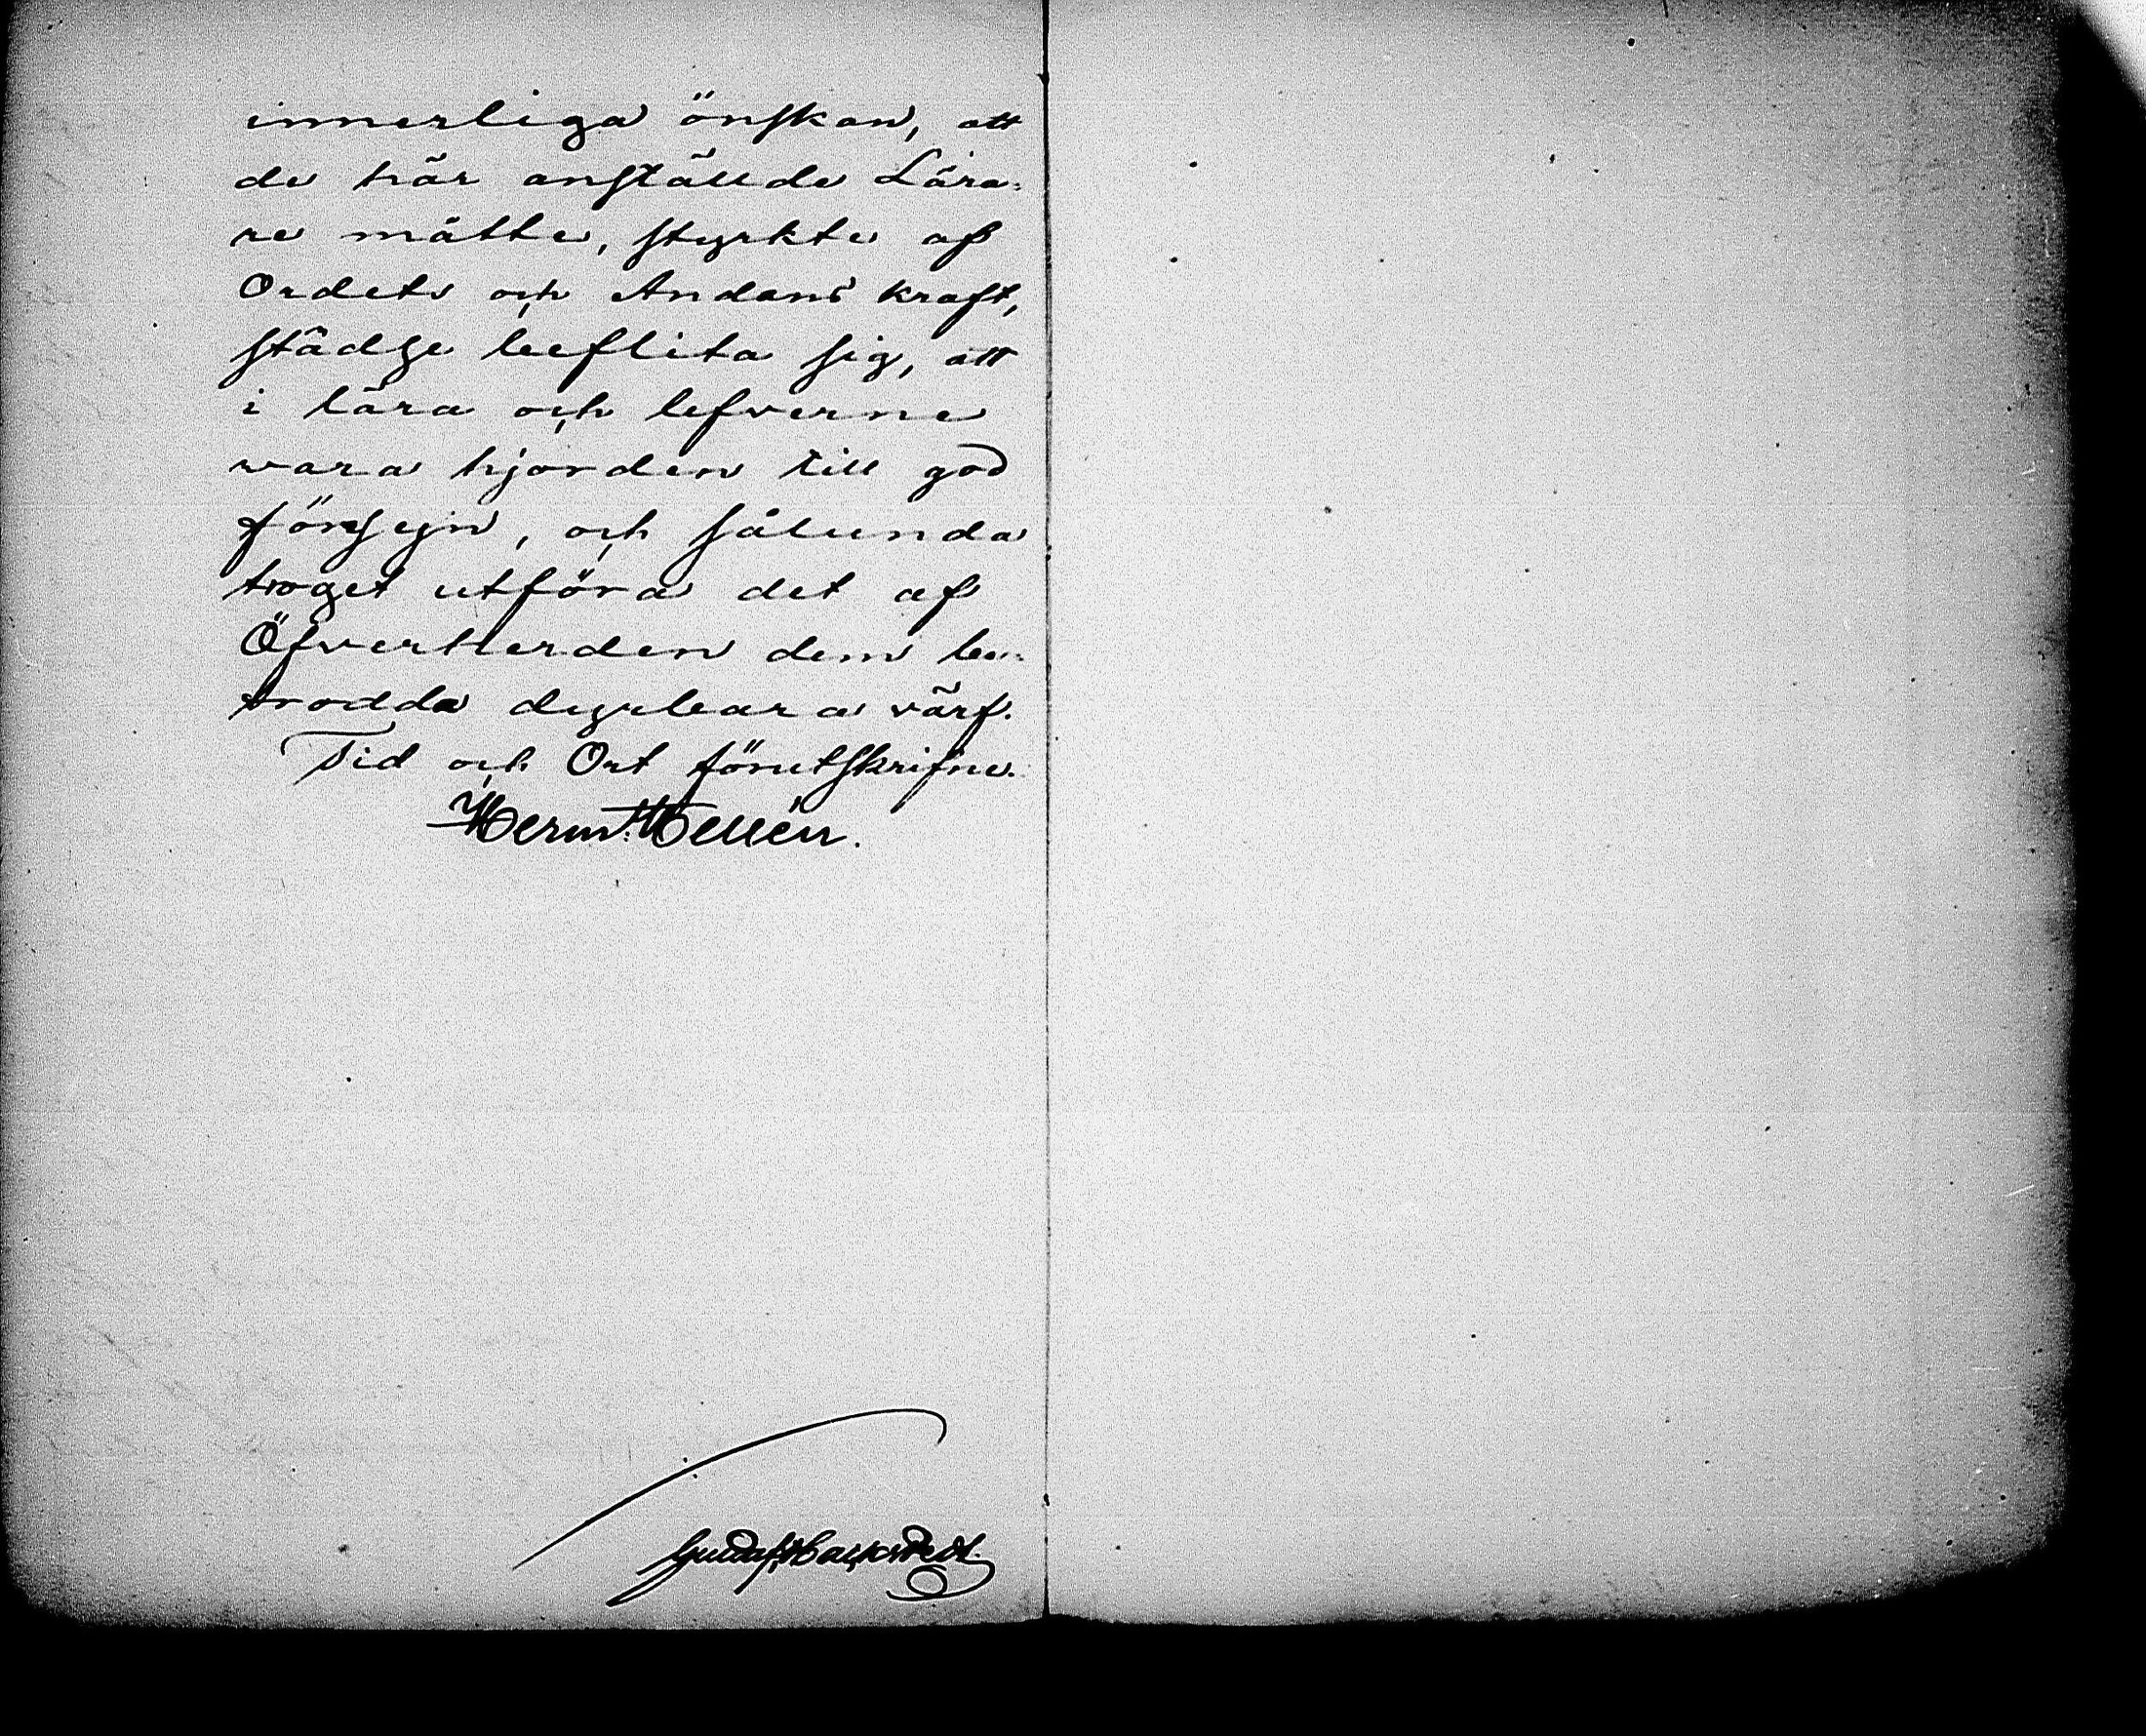 innerliga önskan, att
de här anställde Lära-
re måtte, styrkte af
Ordets och Andans kraft,
städse beflita sig, att
i lära och lefverne
vara hjorden till god
försyn, och sålunda
troget utföra det af
Öfverherden dem be-
trodda dyrbara värf.
Tid och Ort förutskrifne.
Herm. Hellén.
Gustaf Backstedt.